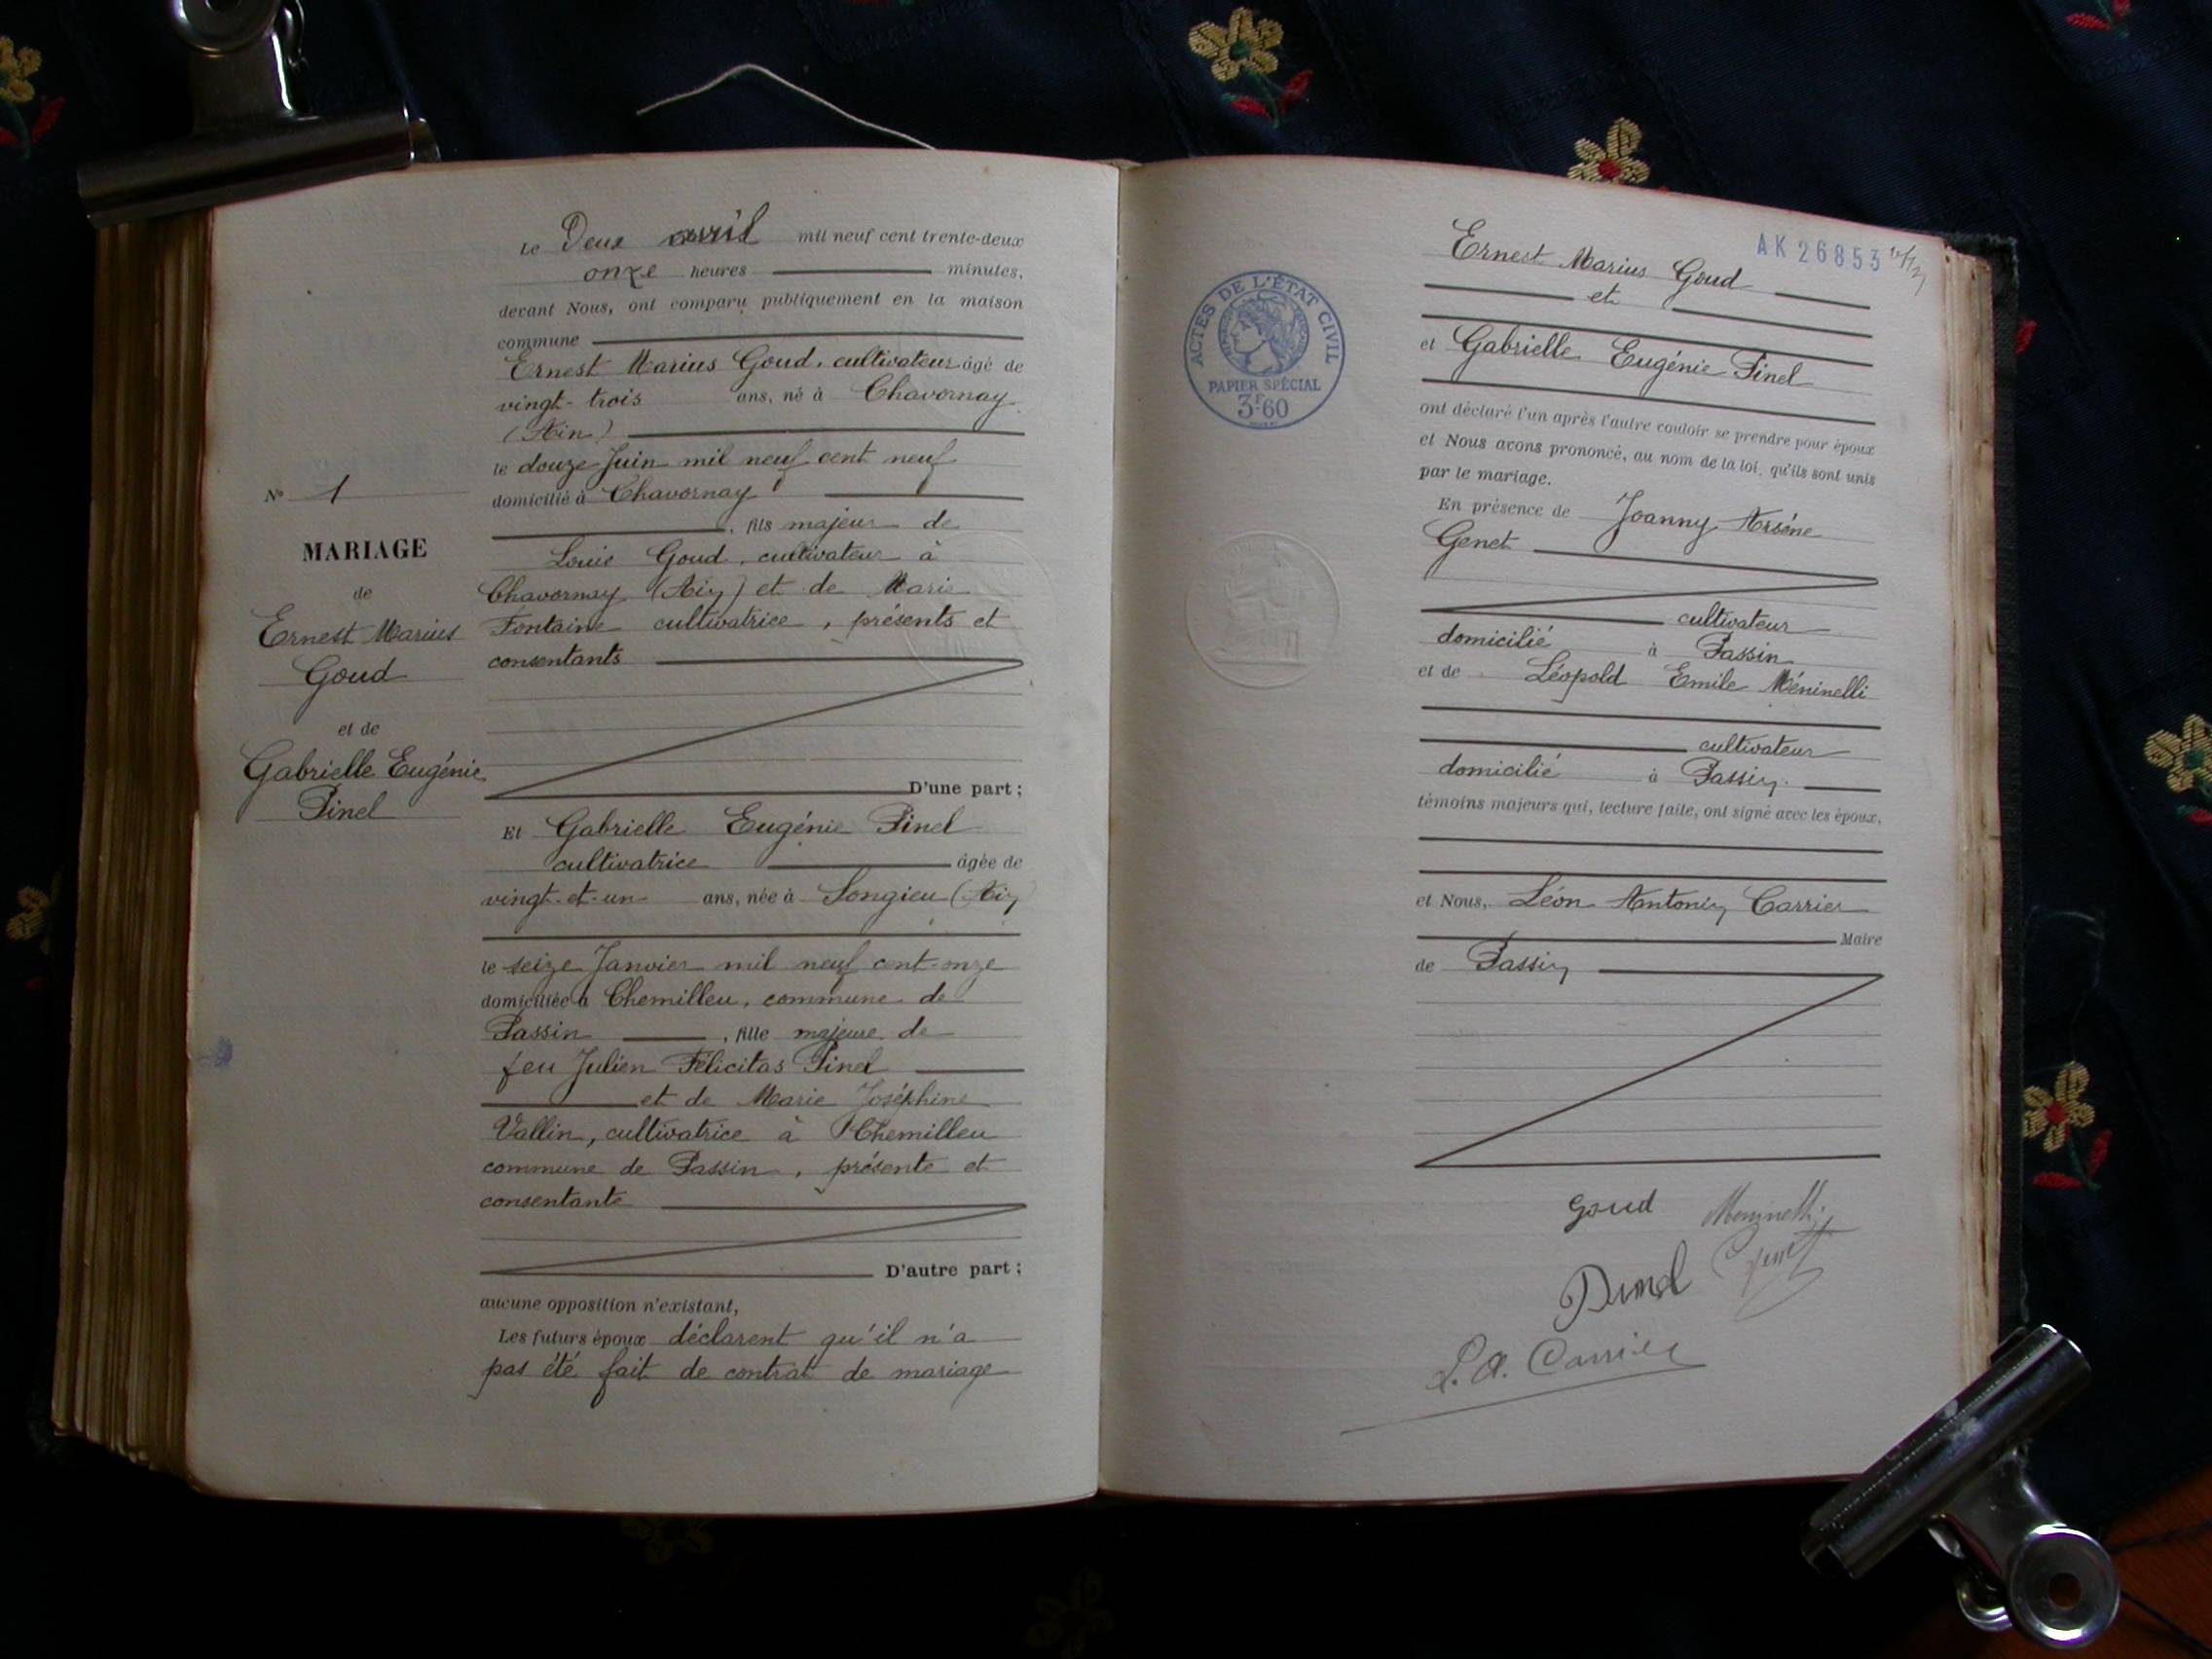 Le Deux avril mil neuf cent trente-deux
onze heures minutes,
devant Nous, ont comparu publiquement en la maison
commune
Ernest Marius Goud, cultivateur âgé de
vingt-trois ans, né à Chavornay
(Ain)
le douze Juin mil neuf cent neuf
domicilié à Chavornay
, fils majeur de
Louis Goud, cultivateur à
Chavornay (Ain) et de Marie
Fontaine cultivatrice, présents et
consentants
D'une part;
Et Gabrielle Eugénie Pinel
cultivatrice âgée de
vingt-et-un ans, née à Songieu (Ain
le seize Janvier mil neuf cent-onze
domiciliée à Chemilleu, commune de
Passin , fille majeure de
feu Julien Félicitas Pinel
et de Marie Joséphine
Vallin, cultivatrice à Chemilleu
commune de Passin, présente et
consentante
D'autre part;
aucune opposition n'existant,
Les futurs époux déclarent qu'il n'a
pas été fait de contrat de mariage
N° 1
MARIAGE
de
Ernest Marius
Goud
et de
Gabrielle Eugénie
Pinel
AK 26853
ACTES DE L'ÉTAT CIVIL
PAPIER SPÉCIAL
3F60
Ernest Marius Goud
et
et Gabrielle Eugénie Pinel
ont déclaré l'un après l'autre vouloir se prendre pour époux
et Nous avons prononcé, au nom de la loi, qu'ils sont unis
par le mariage.
En présence de Joanny Arsène
Genet
cultivateur
domicilié à Passin
et de Léopold Emile Méninelli
cultivateur
domicilié à Passin
témoins majeurs qui, lecture faite, ont signé avec les époux,
et Nous, Léon Antonin Carrier
Maire
de Passin
Goud Meninelli
Pinel Genet
L. A. Carrier